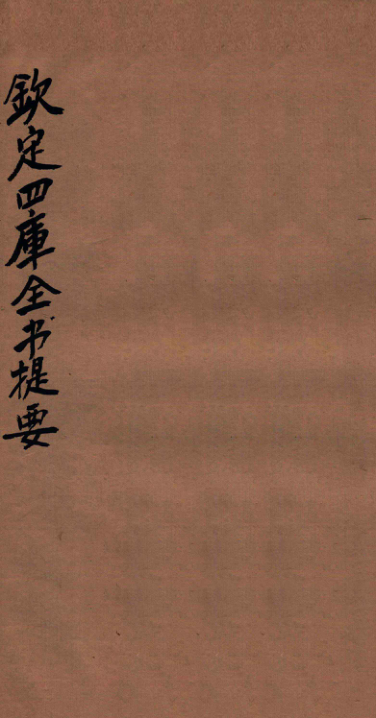 欽定四庫全书提要